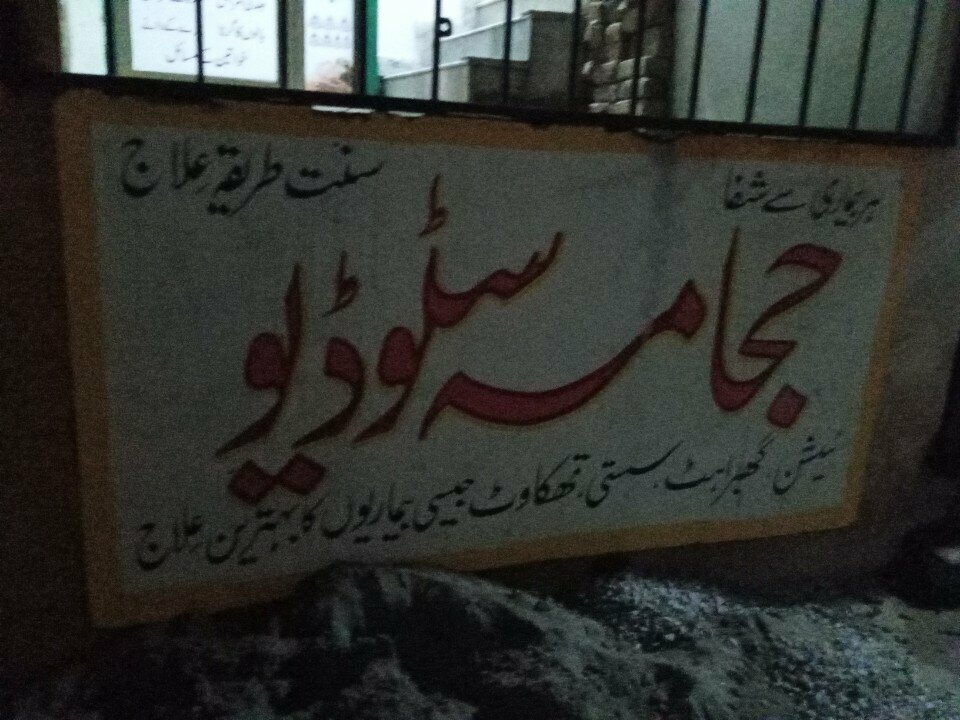 ہر بیماری سے شفا
سنت طریقۂ علاج
حجامہ سٹوڈیو
ٹینشن، گھبراہٹ، سستی، تھکاوٹ جیسی بیماریوں کا بہترین علاج